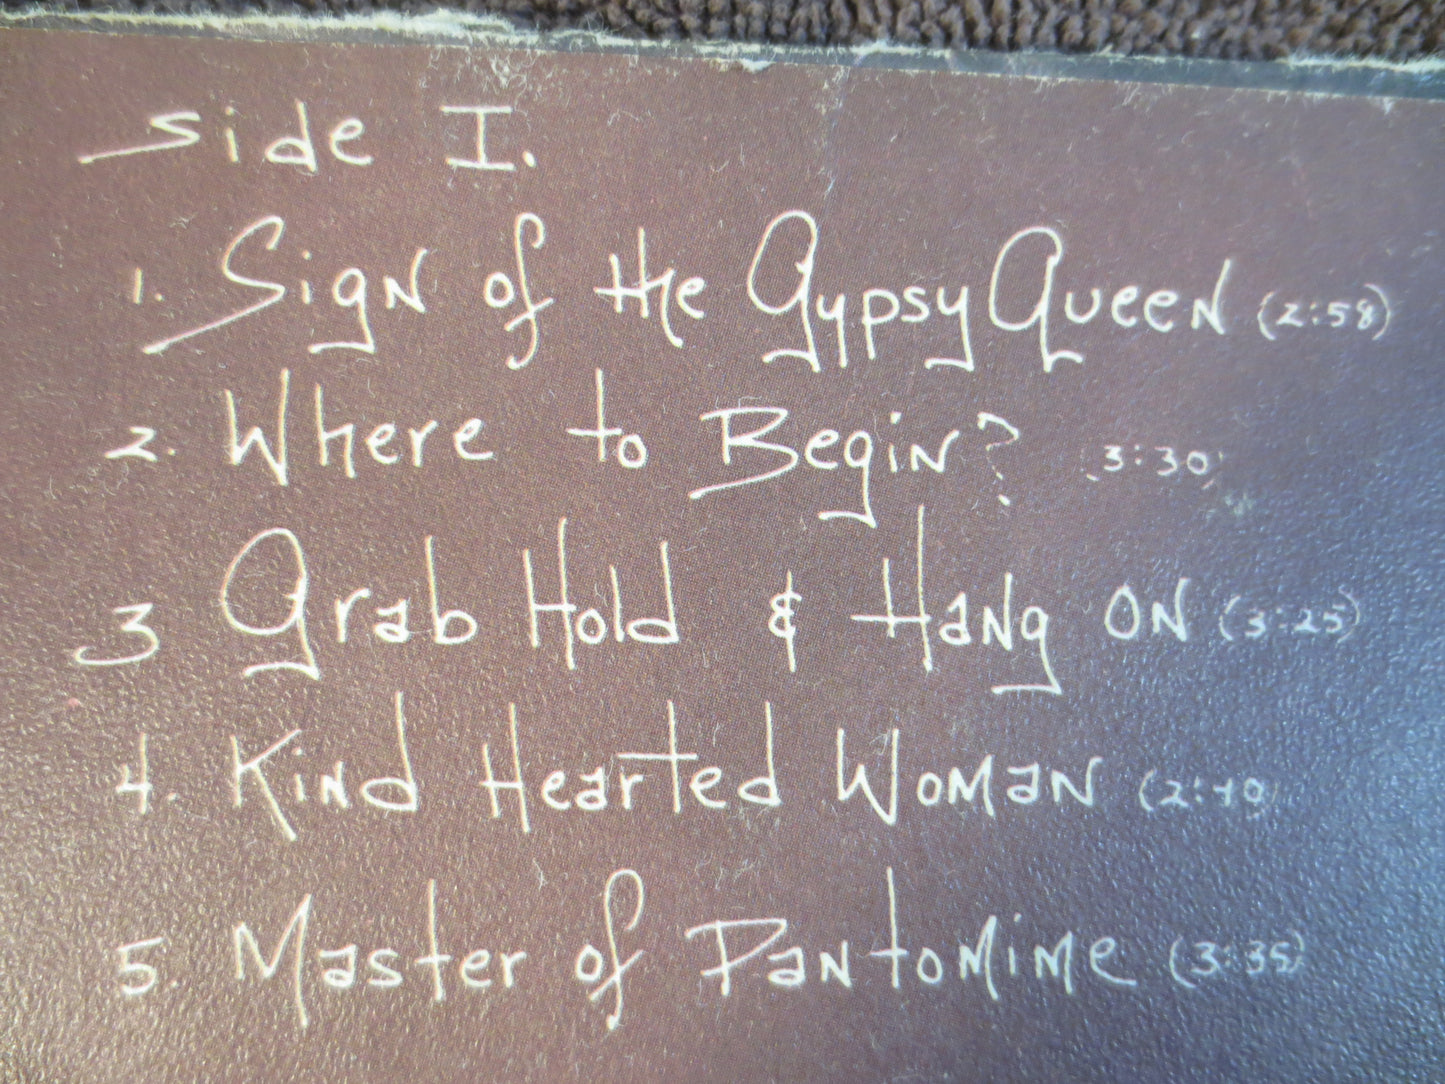 Side I.
1. Sign of the Gypsy Queen (2:58)
2. Where to Begin? (3:30)
3 Grab Hold & Hang ON (3:25)
4. Kind Hearted Woman (2:40)
5. Master of Pantomime (3:35)